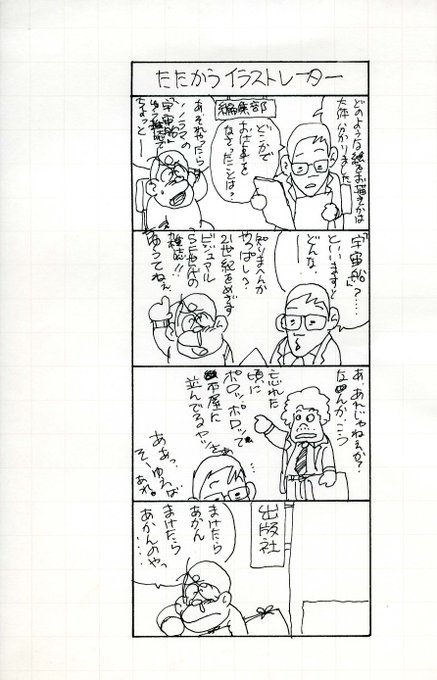 たたかうイラストレーター
どのような絵をお描きかは
大体分かりました
編集部
どこかで
お仕事を
なさったことは？
あ、それやったら
ソノラマの
「宇宙船」
ゆう雑誌で
ちょっと…
「宇宙船」？……
といいますと
どんな…
知りまへんか
やっぱし？
21世紀をめざす
ビジュアル
SF世代の
雑誌!!
ゆうてねぇ
あ、あれじゃねえか？
なんか、こう
忘れた
頃に
ポロッ、ポロッて
本屋に
並んでるヤツ
ああっ
そーゆえば
あれ。
出版社
まけたら
あかん
まけたら
あかんのやっ
……